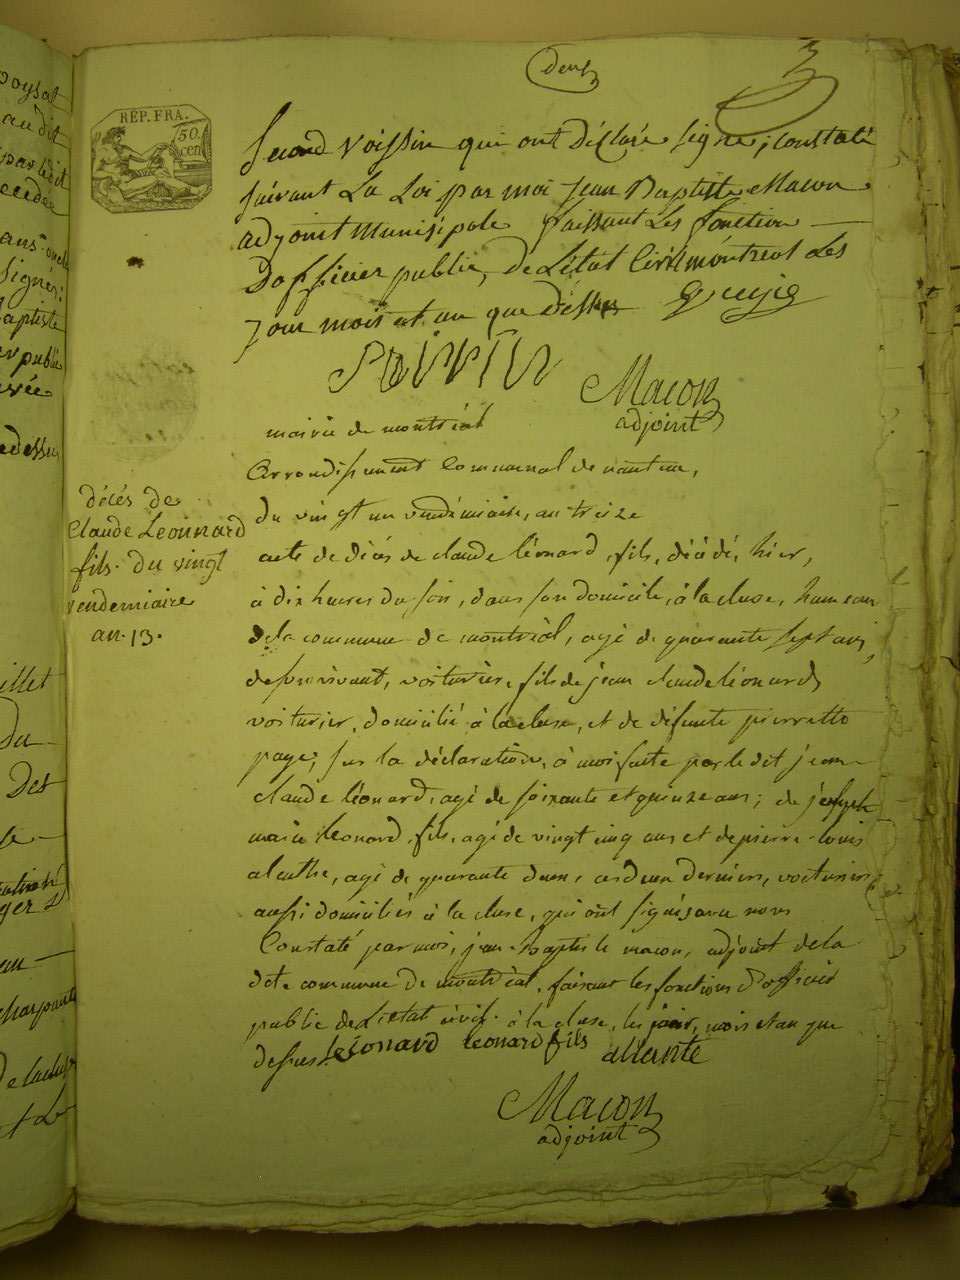 deux
3
REP. FRA.
50.
cen
Second Voissin qui ont Déclaré signe, constaté
suivant La Loi par moi Jean Baptiste Macon
adjoint Munisipale faissant Les fonction
D'officier public, De L'état Civil montreal Les
Jour mois et an que Dessus
Macon
adjoint
mairie de montréal
Arrondissement Communal de nantua,
du vingt un vendémiaire, an treize
décés de
Claude Leonnard
fils. du vingt
vendemiaire
an. 13.
acte de décés de claude léonard, fils, décédé, hier,
à dix heures du soir, dans son domicile, à la cluse, hameau
de la commune de montréal, agé de quarante sept ans,
de son vivant, voiturier, fils de jean claude léonard,
voiturier, domicilié à la cluse, et de défunte pierrette
page; sur la déclaration, à moi faite par le dit jean
claude léonard, agé de soixante et quinze ans; de joseph
marie léonard, fils, agé de vingt cinq ans et de pierre louis
agé de quarante deux, ces deux derniers, voituriers
aussi domiciliés à la cluse, qui ont signés avec nous
Constaté par moi, jean-baptiste macon, adjoint de la
dite commune de montréal, faisant les fonctions d'officier
public de L'état civil. à la cluse, les jour, mois et an que
dessus Leonard leonard fils allante
Macon
adjoint